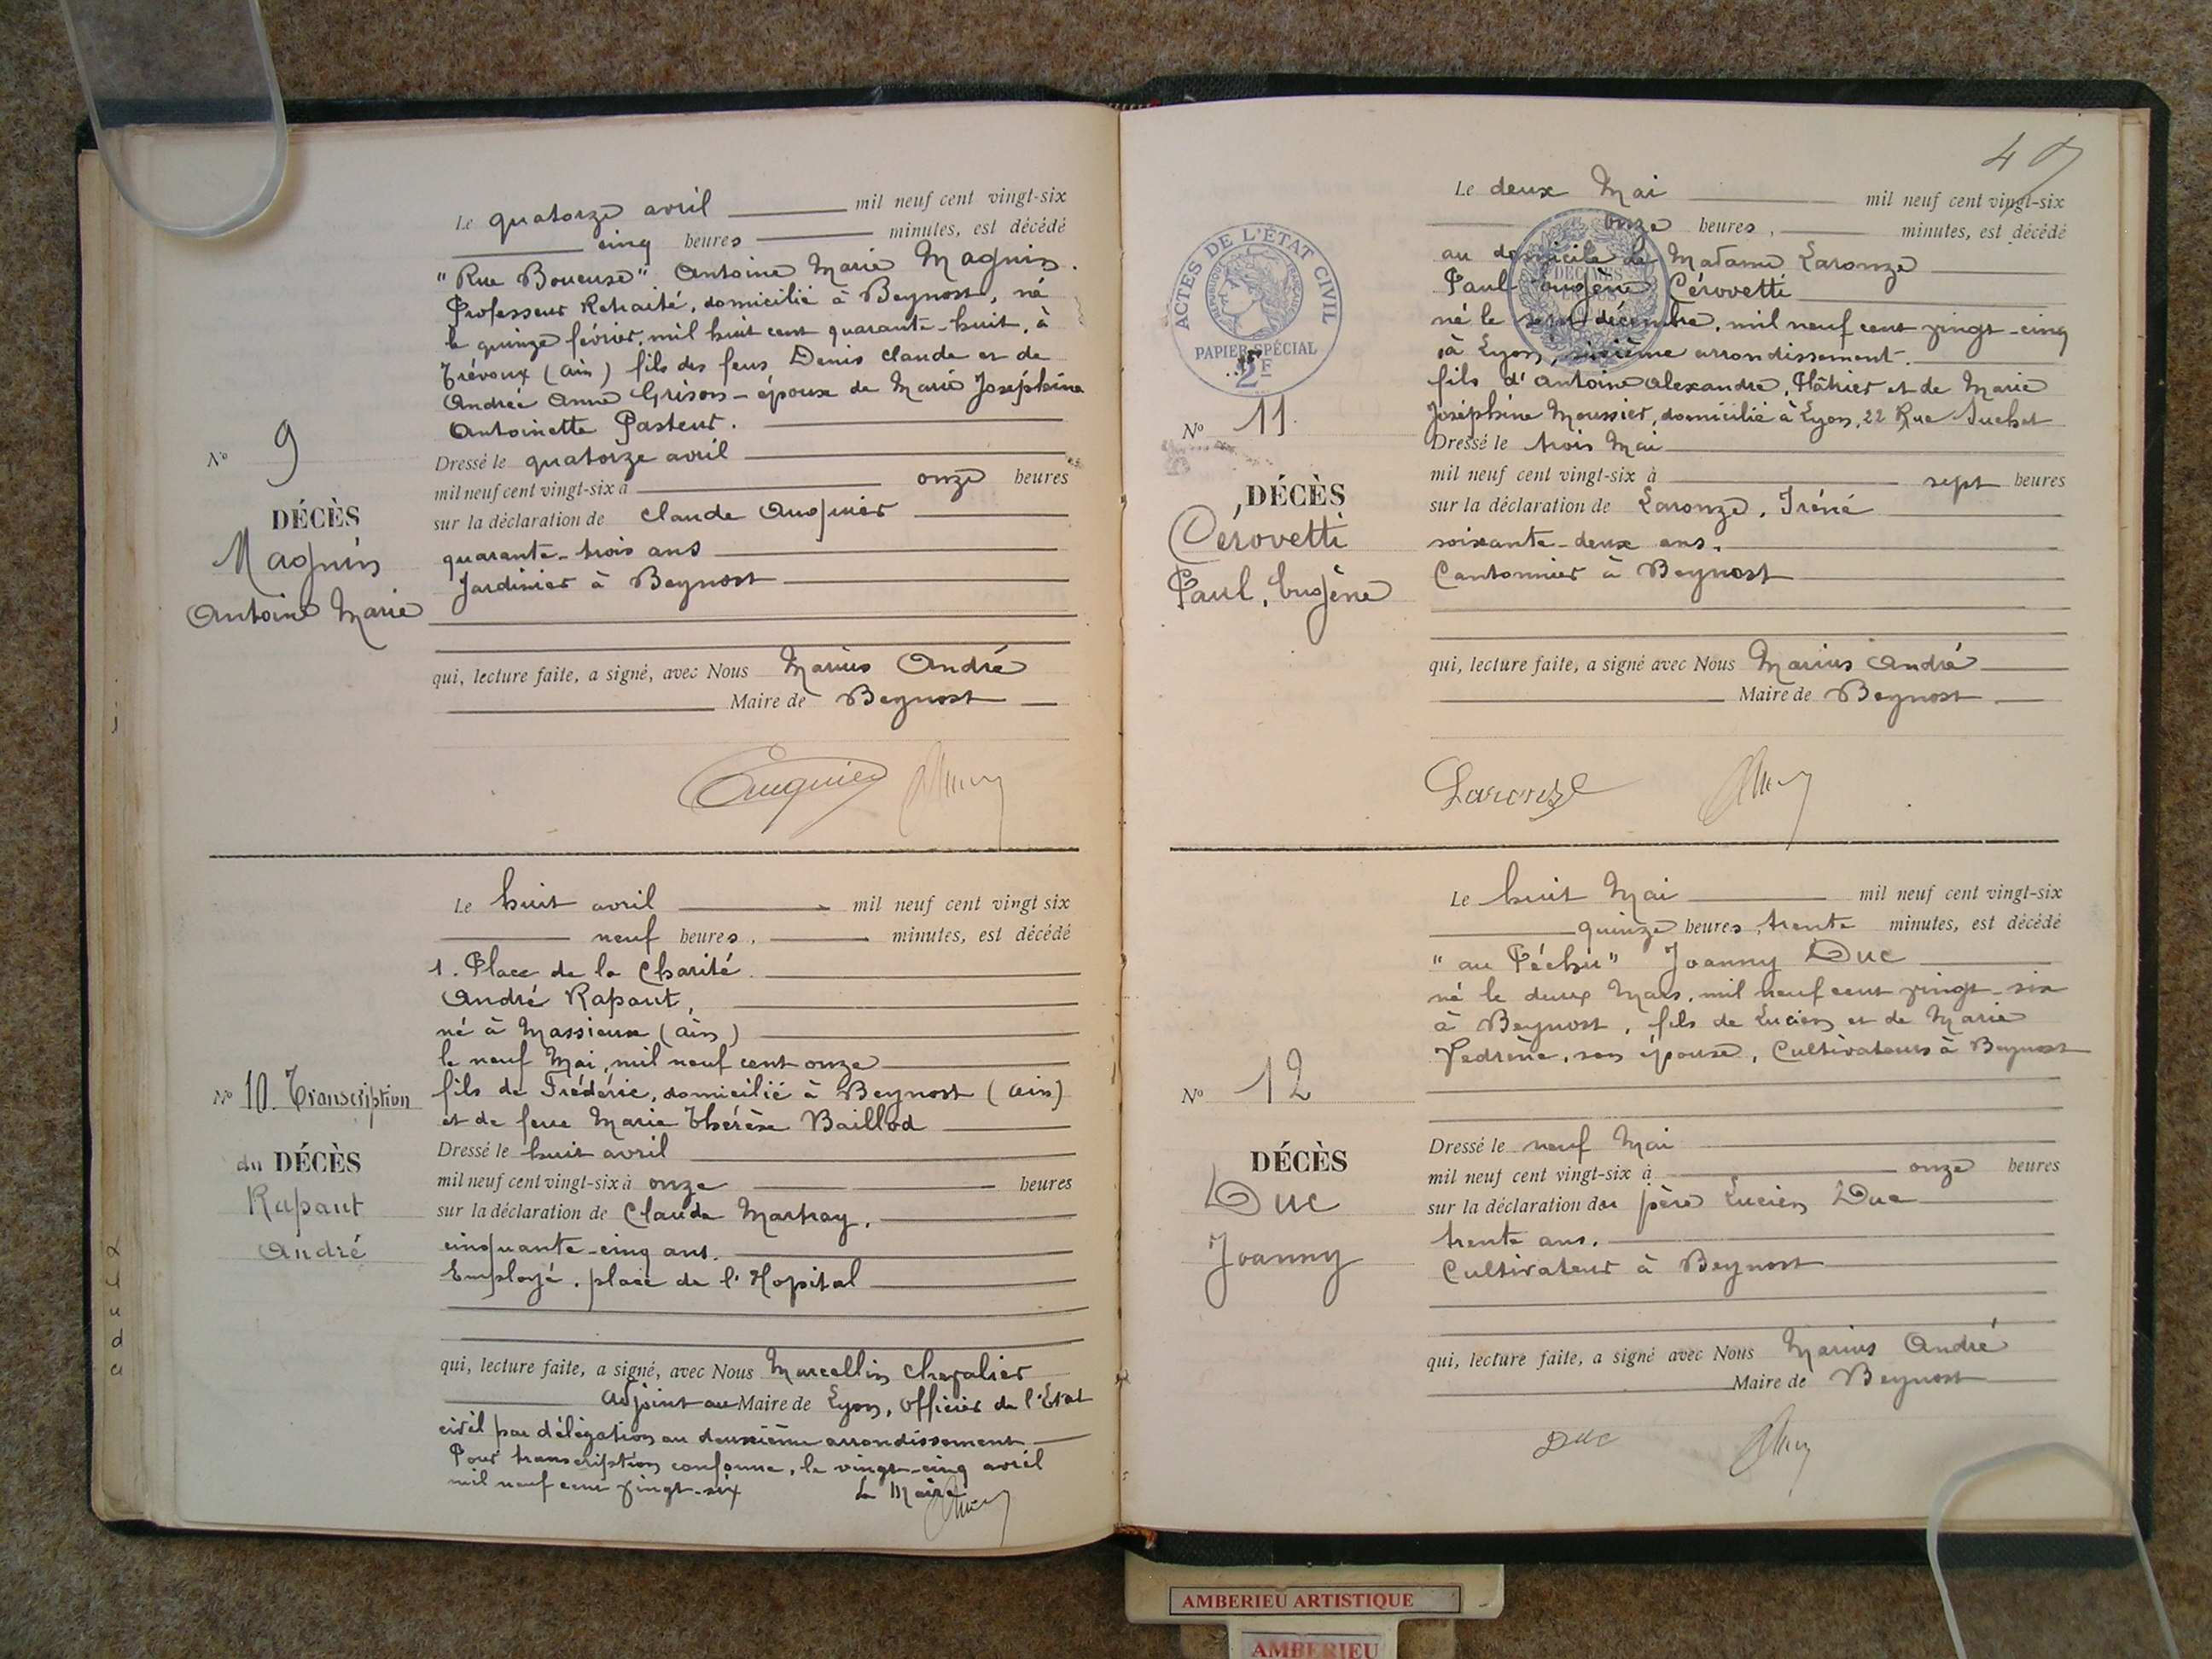 Le quatorze avril mil neuf cent vingt-six
cinq heures minutes, est décédé
"Rue Boueuse" Antoine Marie Magnin.
Professeur Retraité, domicilié à Beynost, né
le quinze février, mil huit cent quarante-huit, à
Trévoux (Ain) fils des feus Denis Claude et de
Andrée Anne Grison - époux de Marie Joséphine
Antoinette Pasteur.
Nº 9
DÉCÈS
Magnin
Antoine Marie
Dressé le quatorze avril
mil neuf cent vingt-six à onze heures
sur la déclaration de Claude Auguier
quarante-trois ans
Jardinier à Beynost
qui, lecture faite, a signé, avec Nous Marius André
Maire de Beynost
Le huit avril mil neuf cent vingt six
neuf heures, minutes, est décédé
1. Place de la Charité
André Rapaut,
né à Massieux (Ain)
le neuf Mai, mil neuf cent onze
fils de Frédéric, domicilié à Beynost (Ain)
et de feue Marie Thérèse Baillod
Nº 10. Transcription
du DÉCÈS
Rapaut
André
Dressé le huit avril
mil neuf cent vingt-six à onze heures
sur la déclaration de Claude Martray,
cinquante-cinq ans.
Employé, place de l'Hopital
qui, lecture faite, a signé, avec Nous Marcellin Chevalier
Adjoint au Maire de Lyon, Officier de l'Etat
civil par délégation au deuxième arrondissement
Pour transcription conforme, le vingt-cinq avril
mil neuf cent vingt-six Le Maire
Le deux Mai mil neuf cent vingt-six
onze heures, minutes, est décédé
au domicile de Madame Laronze
Paul Eugène Cérovetti
né le sept décembre, mil neuf cent vingt-cinq
à Lyon, sixième arrondissement.
fils d'Antoine Alexandre, Plâtrier et de Marie
Joséphine Moussier, domicilié à Lyon, 22 Rue Suchet
ACTES DE L'ÉTAT CIVIL
RÉPUBLIQUE FRANÇAISE
PAPIER SPÉCIAL
2F
DECIMES
EN SUS
Nº 11
DÉCÈS
Cérovetti
Paul, Eugène
Dressé le trois Mai
mil neuf cent vingt-six à sept heures
sur la déclaration de Laronze, Iréné
soixante-deux ans.
Cantonnier à Beynost
qui, lecture faite, a signé avec Nous Marius André
Maire de Beynost
Laronze
Le huit Mai mil neuf cent vingt-six
quinze heures, trente minutes, est décédé
"au Péchu" Joanny Duc
né le deux Mars, mil neuf cent vingt-six
à Beynost, fils de Lucien et de Marie
Vedrine, son épouse, Cultivateurs à Beynost
Nº 12
DÉCÈS
Duc
Joanny
Dressé le neuf Mai
mil neuf cent vingt-six à onze heures
sur la déclaration du père Lucien Duc
trente ans.
Cultivateur à Beynost
qui, lecture faite, a signé avec Nous Marius André
Maire de Beynost
Duc
AMBERIEU ARTISTIQUE
AMBERIEU